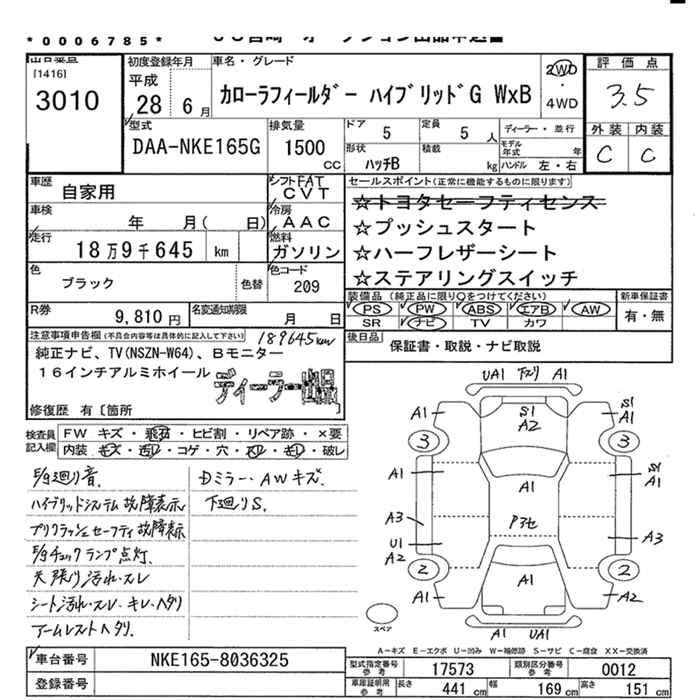 *0006785*
[1416]
3010
初度登録年月
平成
28年 6月
車名・グレード
カローラフィールダー ハイブリッドG WxB
2WD
・
4WD
評価点
3.5
外装 内装
C C
型式
DAA-NKE165G
排気量
1500
CC
ドア 5
定員 5 人
形状
ハッチB
積載
kg
ディーラー・並行
モデル年式 年
ハンドル 左・右
車歴
自家用
シフト FAT
CVT
車検
年 月( 日)
冷房
AAC
走行
18万9千645 km
燃料
ガソリン
色
ブラック
色替
色コード
209
セールスポイント(正常に機能するものに限ります)
☆トヨタセーフティセンス
☆プッシュスタート
☆ハーフレザーシート
☆ステアリングスイッチ
R券
9,810円
名変通知期限
月 日
装備品(純正品に限り○をつけてください)
PS PW ABS エアB AW
SR ナビ TV カワ
新車保証書
有・無
注意事項申告欄(不具合内容等は具体的に記入して下さい)
189645km
純正ナビ、TV(NSZN-W64)、Bモニター
16インチアルミホイール
ディーラー出品
修復歴 有〔箇所
後日品
保証書・取説・ナビ取説
検査員
記入欄
FW キズ・飛石・ヒビ割・リペア跡・×要
内装・キズ・汚レ・コゲ・穴・スレ・キレ・破レ
E/g廻り音.
ハイブリッドシステム故障表示
プリクラッシュセーフティ故障表示
E/gチェックランプ点灯.
天張り汚れ・スレ
シート汚れ・スレ・キレ・ヘタリ
アームレストヘタリ.
Dミラー・AWキズ
下廻りS.
UA1 下廻り A1
A1 S1 A2 S1 A1
3 3
A1 A1 S1 A1
A3 P3セ A3
U1 A2
2 A1 2
A1 A2
A1 UA1
スペア
A-キズ E-エクボ U-凹み W-補修跡 S-サビ C-腐食 XX-交換済
車台番号
NKE165-8036325
登録番号
型式指定番号
参考
17573
類別区分番号
参考
0012
車庫証明用
参考
長さ 441 cm
幅 169 cm
高さ 151 cm